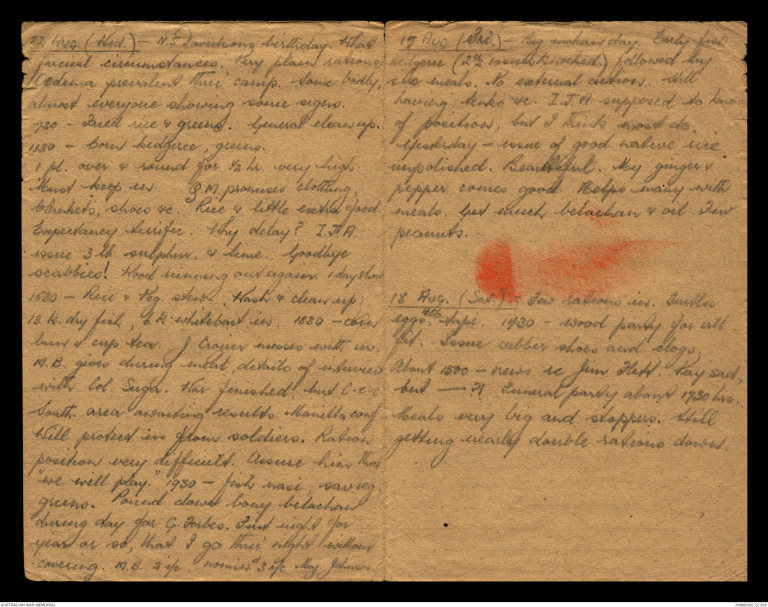 22 Aug. (Wed.) – N.S. Davidsons birthday. What
funeral circumstances. Very plain rations
Oedema prevalent thru' camp. Some badly,
almost everyone showing some signs.
730 – Fried rice & greens. General clean up.
1130 – Corn kedgeree, greens.
1 pl. over & round for ½ hr. very high.
Must keep in. promises clothing,
blankets, shoes &c. Rice & little extra food
Expectancy terrific. Why delay? I.J.A.
issue 3 lb. sulphur & lime. Goodbye
scabbies! Wood running out again. 1 day show
1530 – Rice & Veg. stew. Wash & clean up,
13 k. dry fish, 2 k. whitebait in. 1830 – corn
bun & cup tea. J. Crozier messes with us.
M.B. gives during meal, details of interview
with Col Suga. War finished, but
South area awaiting results Manilla conf
Will protect us from soldiers. Ration
position very difficult. Assure him that
"we will play." 1930 – fish nasi, sav. veg.
greens. Pound down bony belachan
during day for G. Forbes. First night for
year or so, that I go thru' night without
covering. M.B. 2 i/c 3 i/c Maj Johnson
17 Aug. (Sat.) – By mohan day. Early fish
kedgeree (2½ knocked) followed by
six meals. No external duties. Still
having tenko &c. I.J.A supposed to know
of position, but I think most do.
Yesterday – issue of good native rice
unpolished. Beautiful. My ginger &
pepper comes good. Helps many with
meals. Get much belachan & oil. Few
peanuts.
18 Aug. (Sat.) – Few rations in. Turtles
eggs. 1430 – wood party for all
fit. Issue rubber shoes and clogs.
About 1500 – news re Jim Flett. Very sad,
but — ?! Funeral party about 1730 hrs.
Meals very big and stoppers. Still
getting nearly double rations down.
AUSTRALIAN WAR MEMORIAL